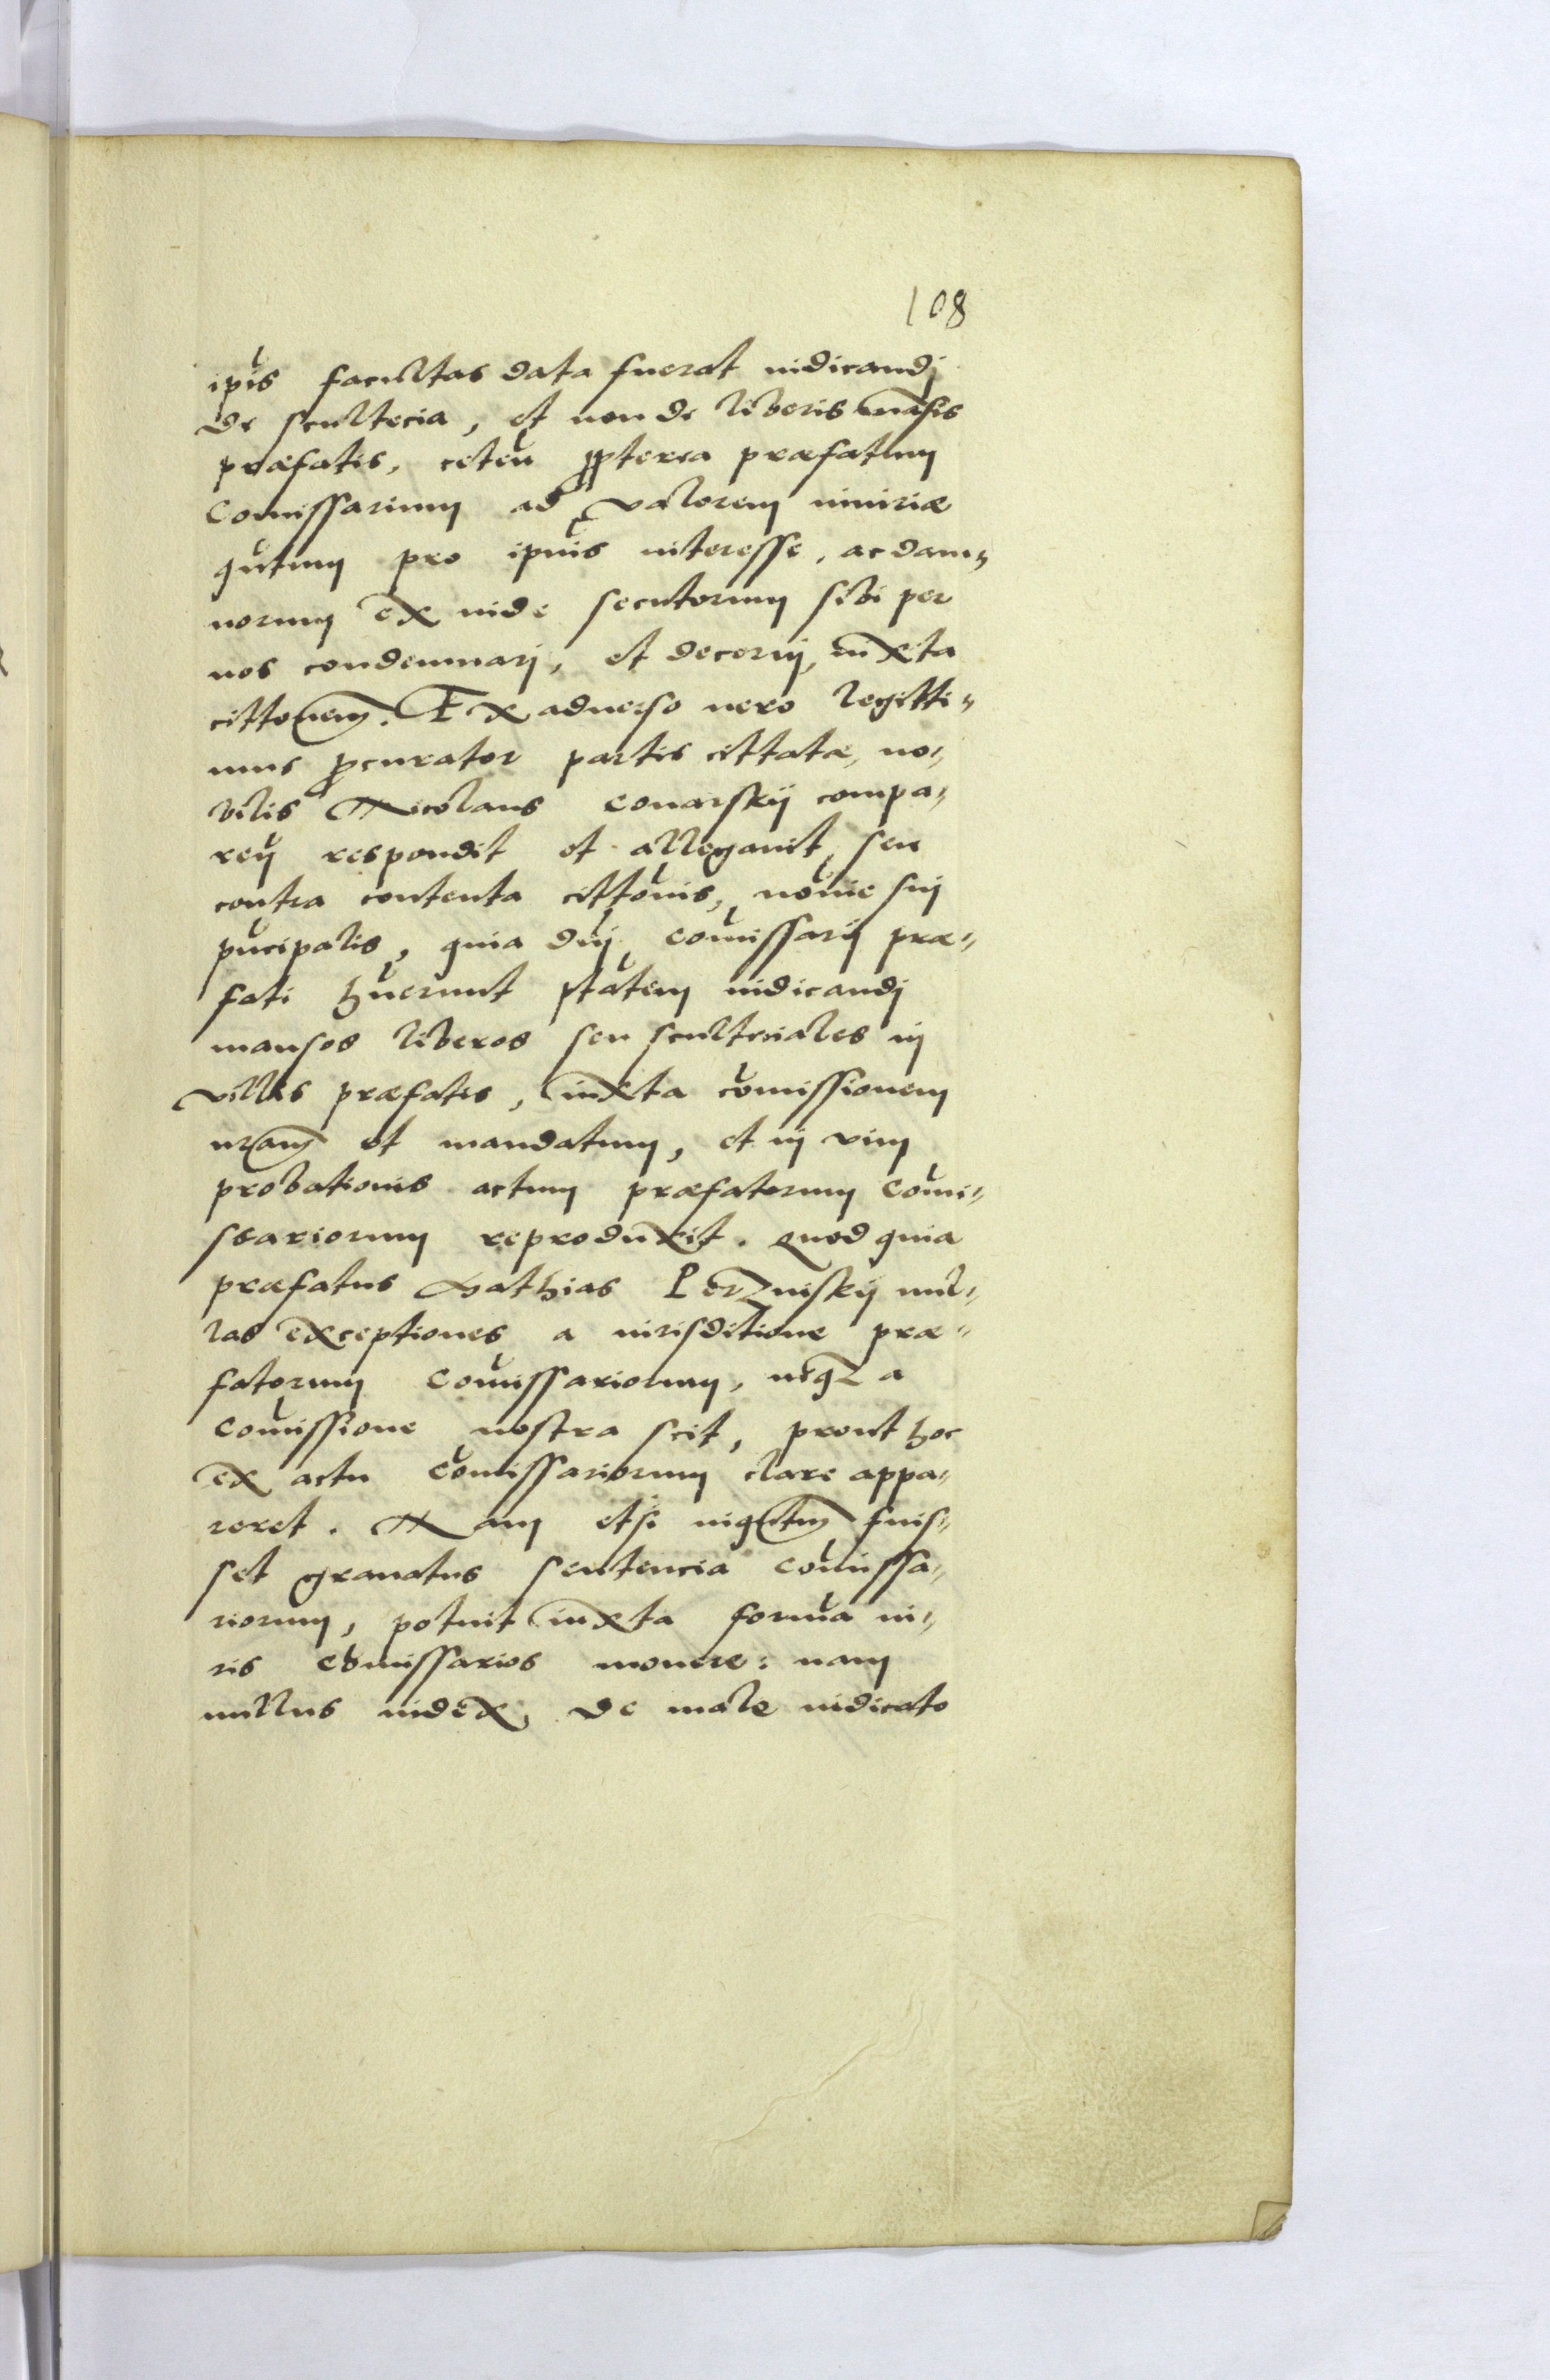 108
ipīs facultas data fuerat iudicandj
de scultecia, et non de liberis māsis
præfatis, petēn ꝓpterea præfatum
Comissarium ad valorem iniuriæ
qūtum pro ipīus interesse, ac dam„
norum ex inde secutorum sibi per
nos condemnarj, et decernj, iuxta
cittonem. Ex aduerso uero legitti„
mus ꝓcurator partis cittatæ, no„
bilis Nicolaus Conarskij compa„
ren respondit et allegauit, seu
contra contenta cittōnis, nōmīe suj
pūcipalis, quia dnj comissarij præ„
fati hūerunt ptātem iudicandj
mansos liberos seu scultetiales in
villis præfatis, iuxta cōmissionem
nram et mandatum, et in vim
probationis actum præfatorum Comi„
ssariorum reproduxit. Quod quia
præfatus Mathias Perzniskij nul„
las exceptiones a iurisditione præ„
fatorum Comissariorum, neqꝫ a
Comissione nostra fecit, prout hoc
ex actu Comissariorum clare appa„
reret. Nam etsi inqntum fuis„
set grauatus sentencia Comissa„
riorum, potuit iuxta formā iu„
ris Comissarios mouere: nam
nullus iudex, de male iudicato